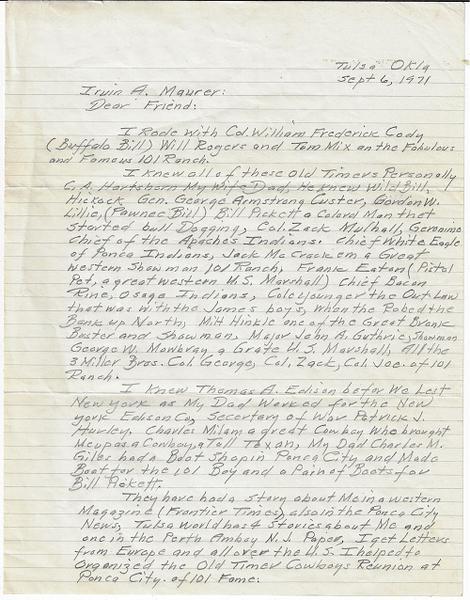 Tulsa Okla
Sept 6, 1971
Irwin A. Maurer:
Dear Friend:
I Rode with Col. William Frederick Cody
(Buffalo Bill) Will Rogers and Tom Mix on the Fabulous
and Famous 101 Ranch.
I Knew all of these Old Timers Personally
C. A. Hartshorn My Wife Dad, He Knew Wild Bill
Hickock Gen. George Armstrong Custer, Gordon W.
Lillie, (Pawnee Bill) Bill Pickett a Colard Man that
started bull Dogging, Col. Zack Mulhall, Geronimo
Chief of the Apaches Indians. Chief White Eagle
of Ponca Indians, Jack McCracken a Great
Western Showman 101 Ranch, Frank Eaton (Pistol
Pet, a great western U.S. Marshall) Chief Bacon
Rine, Osage Indians, Cole younger the Out Law
that was with the James boys, when the Robed the
Bank up North, Milt Hinkle one of the Great Bronk
Buster and Showman, Major John A. Guthrie, Showman
George W. Mowbray a Grate U.S. Marshall, All the
3 Miller Bros. Col. George, Col. Zack, Col. Joe. of 101
Ranch.
I Knew Thomas A. Edison befor We Left
New York as My Dad Worked for the New
york Edison Co, Secertary of War Patrick J.
Hurley. Charles Milam a great Cowboy Who brought
Me up as a Cowboy, a Tall Texan, My Dad Charles M.
Giles had a Boot Shop in Ponca City and Made
Boot for the 101 Boy and a Pair of Boots for
Bill Pickett.
They have had a story about Me in a western
Magazine (Frontier Times) also in the Ponca City
News, Tulsa World has 4 Stories about Me and
one in the Perth Amboy N.J. Paper, I get Letters
from Europe and all over the U.S. I helped to
Organized the Old Timer Cowboys Reunion at
Ponca City. of 101 Fame.